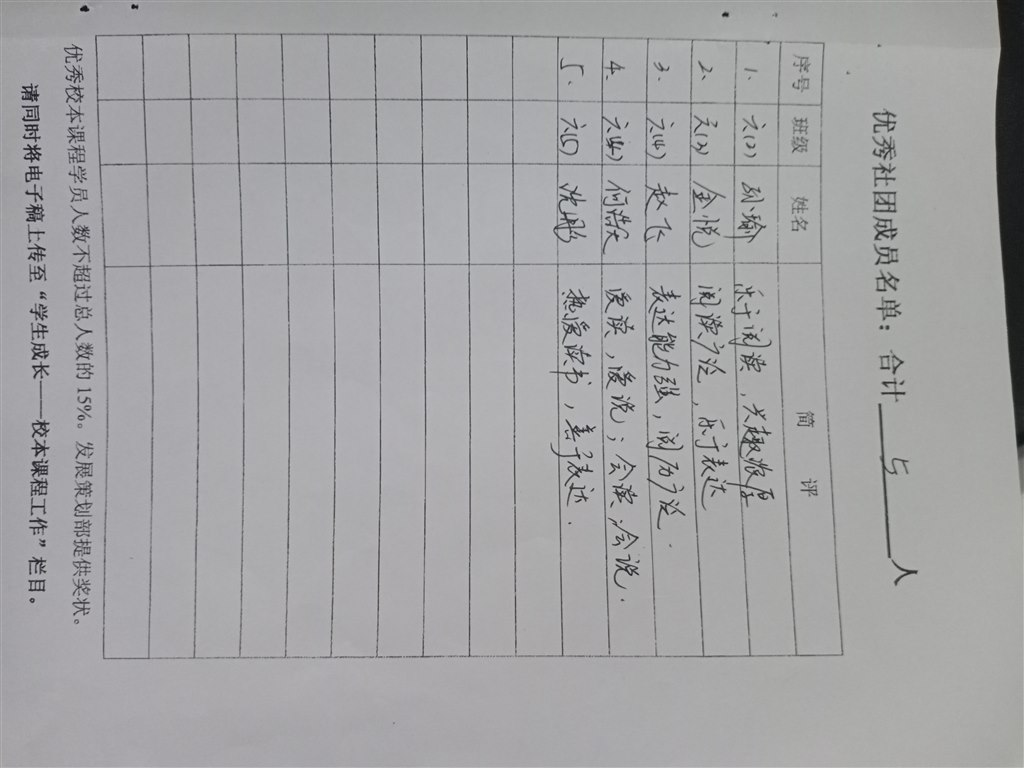 优秀社团成员名单：合计 5 人
序号 班级 姓名 简 评
1. 六(2) 孙瑜 乐于阅读，兴趣浓厚
2. 六(2) 金悦 阅读广泛，乐于表达
3. 六(4) 赵飞 表达能力强，阅历广泛.
4. 六(4) 何浩天 爱读，爱说；会读，会说.
5. 六(5) 沈彤 热爱读书，善于表达.
优秀校本课程学员人数不超过总人数的 15%。发展策划部提供奖状。
请同时将电子稿上传至“学生成长——校本课程工作”栏目。